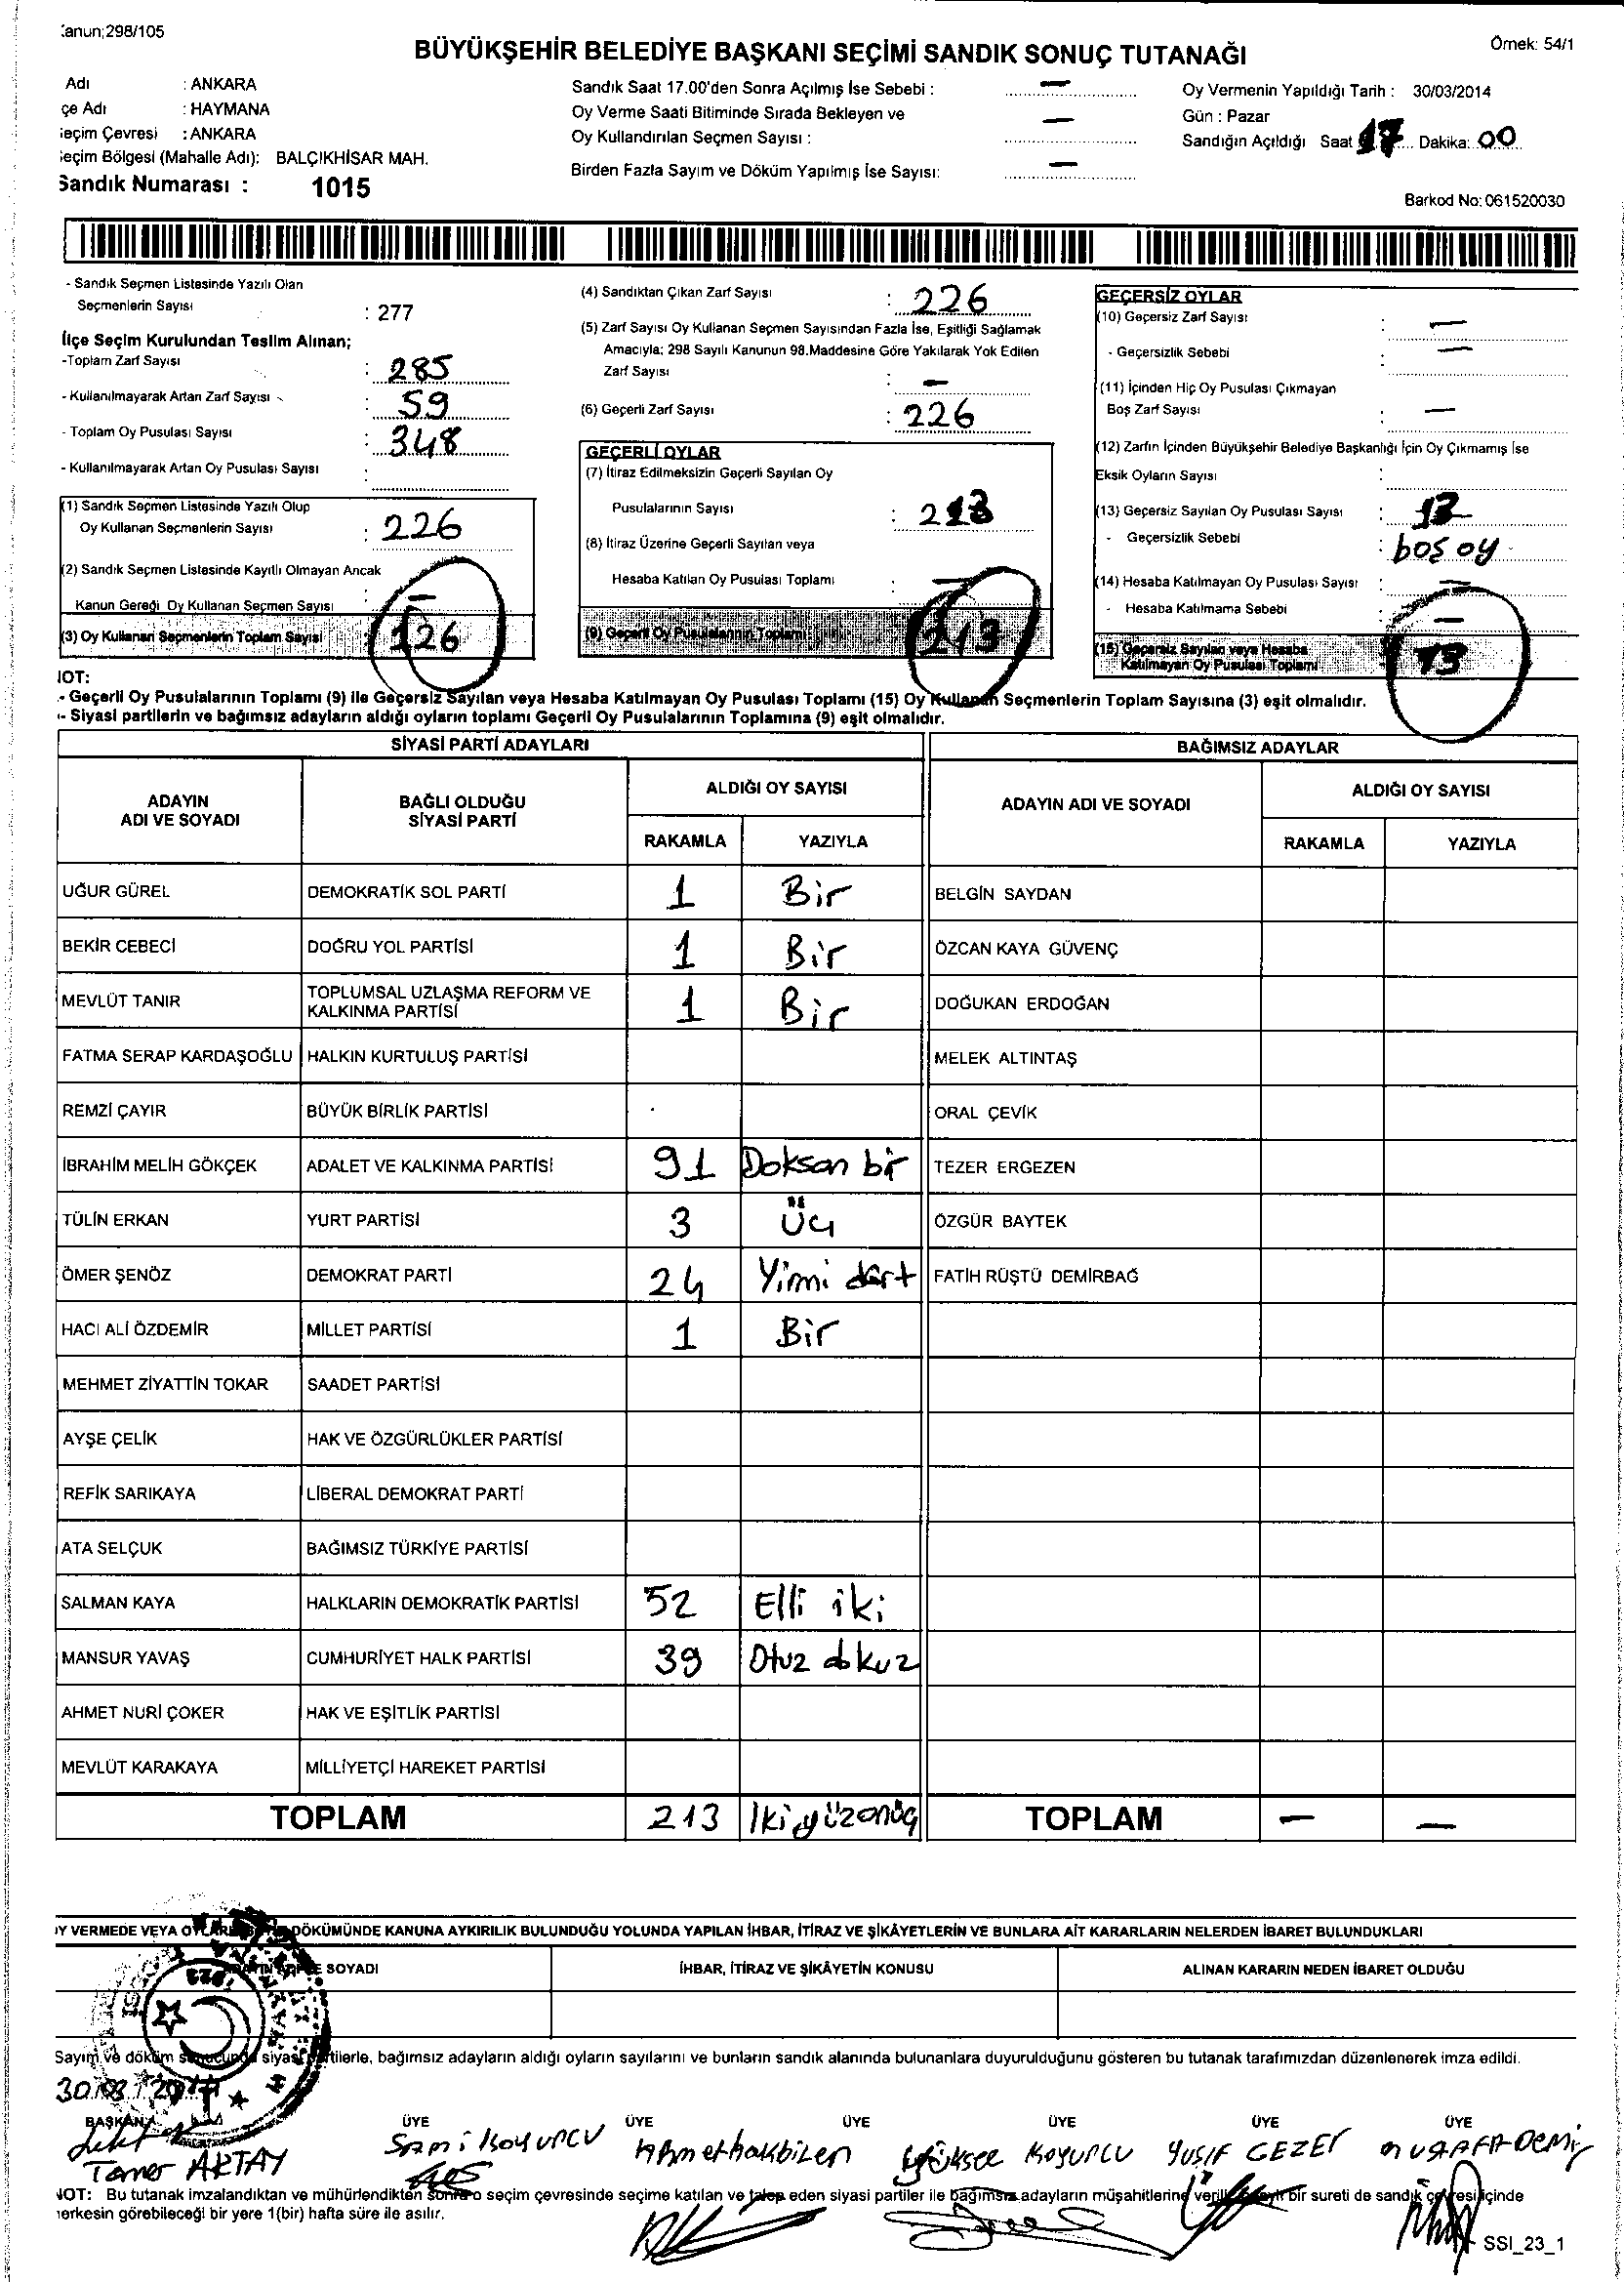 :anun;298/105
Örnek: 54/1
BÜYÜKŞEHİR BELEDİYE BAŞKANI SEÇİMİ SANDIK SONUÇ TUTANAĞI
Adı : ANKARA
çe Adı : HAYMANA
eçim Çevresi : ANKARA
eçim Bölgesi (Mahalle Adı): BALÇIKHİSAR MAH.
Sandık Numarası : 1015
Sandık Saat 17.00'den Sonra Açılmış İse Sebebi : —
Oy Verme Saati Bitiminde Sırada Bekleyen ve
Oy Kullandırılan Seçmen Sayısı : —
Birden Fazla Sayım ve Döküm Yapılmış İse Sayısı: —
Oy Vermenin Yapıldığı Tarih : 30/03/2014
Gün : Pazar
Sandığın Açıldığı Saat 17 Dakika: 00
Barkod No: 061520030
- Sandık Seçmen Listesinde Yazılı Olan
Seçmenlerin Sayısı : 277
İlçe Seçim Kurulundan Teslim Alınan;
-Toplam Zarf Sayısı : 285
- Kullanılmayarak Artan Zarf Sayısı : 59
- Toplam Oy Pusulası Sayısı : 348
- Kullanılmayarak Artan Oy Pusulası Sayısı :
(1) Sandık Seçmen Listesinde Yazılı Olup
Oy Kullanan Seçmenlerin Sayısı : 226
(2) Sandık Seçmen Listesinde Kayıtlı Olmayan Ancak
Kanun Gereği Oy Kullanan Seçmen Sayısı : —
(3) Oy Kullanan Seçmenlerin Toplam Sayısı : 226
(4) Sandıktan Çıkan Zarf Sayısı : 226
(5) Zarf Sayısı Oy Kullanan Seçmen Sayısından Fazla İse, Eşitliği Sağlamak
Amacıyla; 298 Sayılı Kanunun 98.Maddesine Göre Yakılarak Yok Edilen
Zarf Sayısı : —
(6) Geçerli Zarf Sayısı : 226
GEÇERLİ OYLAR
(7) İtiraz Edilmeksizin Geçerli Sayılan Oy
Pusulalarının Sayısı : 213
(8) İtiraz Üzerine Geçerli Sayılan veya
Hesaba Katılan Oy Pusulası Toplamı : —
(9) Geçerli Oy Pusulalarının Toplamı : 213
GEÇERSİZ OYLAR
(10) Geçersiz Zarf Sayısı : —
- Geçersizlik Sebebi : —
(11) İçinden Hiç Oy Pusulası Çıkmayan
Boş Zarf Sayısı : —
(12) Zarfın İçinden Büyükşehir Belediye Başkanlığı İçin Oy Çıkmamış İse
Eksik Oyların Sayısı :
(13) Geçersiz Sayılan Oy Pusulası Sayısı : 13
- Geçersizlik Sebebi : boş oy
(14) Hesaba Katılmayan Oy Pusulası Sayısı : —
- Hesaba Katılmama Sebebi : —
(15) Geçersiz Sayılan veya Hesaba
Katılmayan Oy Pusulası Toplamı : 13
NOT:
.- Geçerli Oy Pusulalarının Toplamı (9) ile Geçersiz Sayılan veya Hesaba Katılmayan Oy Pusulası Toplamı (15) Oy Kullanan Seçmenlerin Toplam Sayısına (3) eşit olmalıdır.
- Siyasi partilerin ve bağımsız adayların aldığı oyların toplamı Geçerli Oy Pusulalarının Toplamına (9) eşit olmalıdır.
SİYASİ PARTİ ADAYLARI BAĞIMSIZ ADAYLAR
ADAYIN ADI VE SOYADI BAĞLI OLDUĞU SİYASİ PARTİ ALDIĞI OY SAYISI ADAYIN ADI VE SOYADI ALDIĞI OY SAYISI
RAKAMLA YAZIYLA RAKAMLA YAZIYLA
UĞUR GÜREL DEMOKRATİK SOL PARTİ 1 Bir BELGİN SAYDAN
BEKİR CEBECİ DOĞRU YOL PARTİSİ 1 Bir ÖZCAN KAYA GÜVENÇ
MEVLÜT TANIR TOPLUMSAL UZLAŞMA REFORM VE KALKINMA PARTİSİ 1 Bir DOĞUKAN ERDOĞAN
FATMA SERAP KARDAŞOĞLU HALKIN KURTULUŞ PARTİSİ MELEK ALTINTAŞ
REMZİ ÇAYIR BÜYÜK BİRLİK PARTİSİ ORAL ÇEVİK
İBRAHİM MELİH GÖKÇEK ADALET VE KALKINMA PARTİSİ 91 Doksan bir TEZER ERGEZEN
TÜLİN ERKAN YURT PARTİSİ 3 Üç ÖZGÜR BAYTEK
ÖMER ŞENÖZ DEMOKRAT PARTİ 24 Yirmi dört FATİH RÜŞTÜ DEMİRBAĞ
HACI ALİ ÖZDEMİR MİLLET PARTİSİ 1 Bir
MEHMET ZİYATTİN TOKAR SAADET PARTİSİ
AYŞE ÇELİK HAK VE ÖZGÜRLÜKLER PARTİSİ
REFİK SARIKAYA LİBERAL DEMOKRAT PARTİ
ATA SELÇUK BAĞIMSIZ TÜRKİYE PARTİSİ
SALMAN KAYA HALKLARIN DEMOKRATİK PARTİSİ 52 Elli iki
MANSUR YAVAŞ CUMHURİYET HALK PARTİSİ 39 Otuz dokuz
AHMET NURİ ÇOKER HAK VE EŞİTLİK PARTİSİ
MEVLÜT KARAKAYA MİLLİYETÇİ HAREKET PARTİSİ
TOPLAM 213 İkiyüzonüç TOPLAM — —
Y VERMEDE VEYA DÖKÜMÜNDE KANUNA AYKIRILIK BULUNDUĞU YOLUNDA YAPILAN İHBAR, İTİRAZ VE ŞİKÂYETLERİN VE BUNLARA AİT KARARLARIN NELERDEN İBARET BULUNDUKLARI
SOYADI İHBAR, İTİRAZ VE ŞİKÂYETİN KONUSU ALINAN KARARIN NEDEN İBARET OLDUĞU
Sayım ve döküm sonucunda siyasi partilerle, bağımsız adayların aldığı oyların sayılarını ve bunların sandık alanında bulunanlara duyurulduğunu gösteren bu tutanak tarafımızdan düzenlenerek imza edildi.
30/03/2014
BAŞKAN ÜYE ÜYE ÜYE ÜYE ÜYE ÜYE
Taner AKTAY Sami Koyuncu Ahmet hakbilen Yüksel Koyuncu YUSUF GEZER MUSTAFA Demir
NOT: Bu tutanak imzalandıktan ve mühürlendikten sonra o seçim çevresinde seçime katılan ve talep eden siyasi partiler ile bağımsız adayların müşahitlerine bir sureti de sandık çevresi içinde
herkesin görebileceği bir yere 1(bir) hafta süre ile asılır.
SSI_23_1